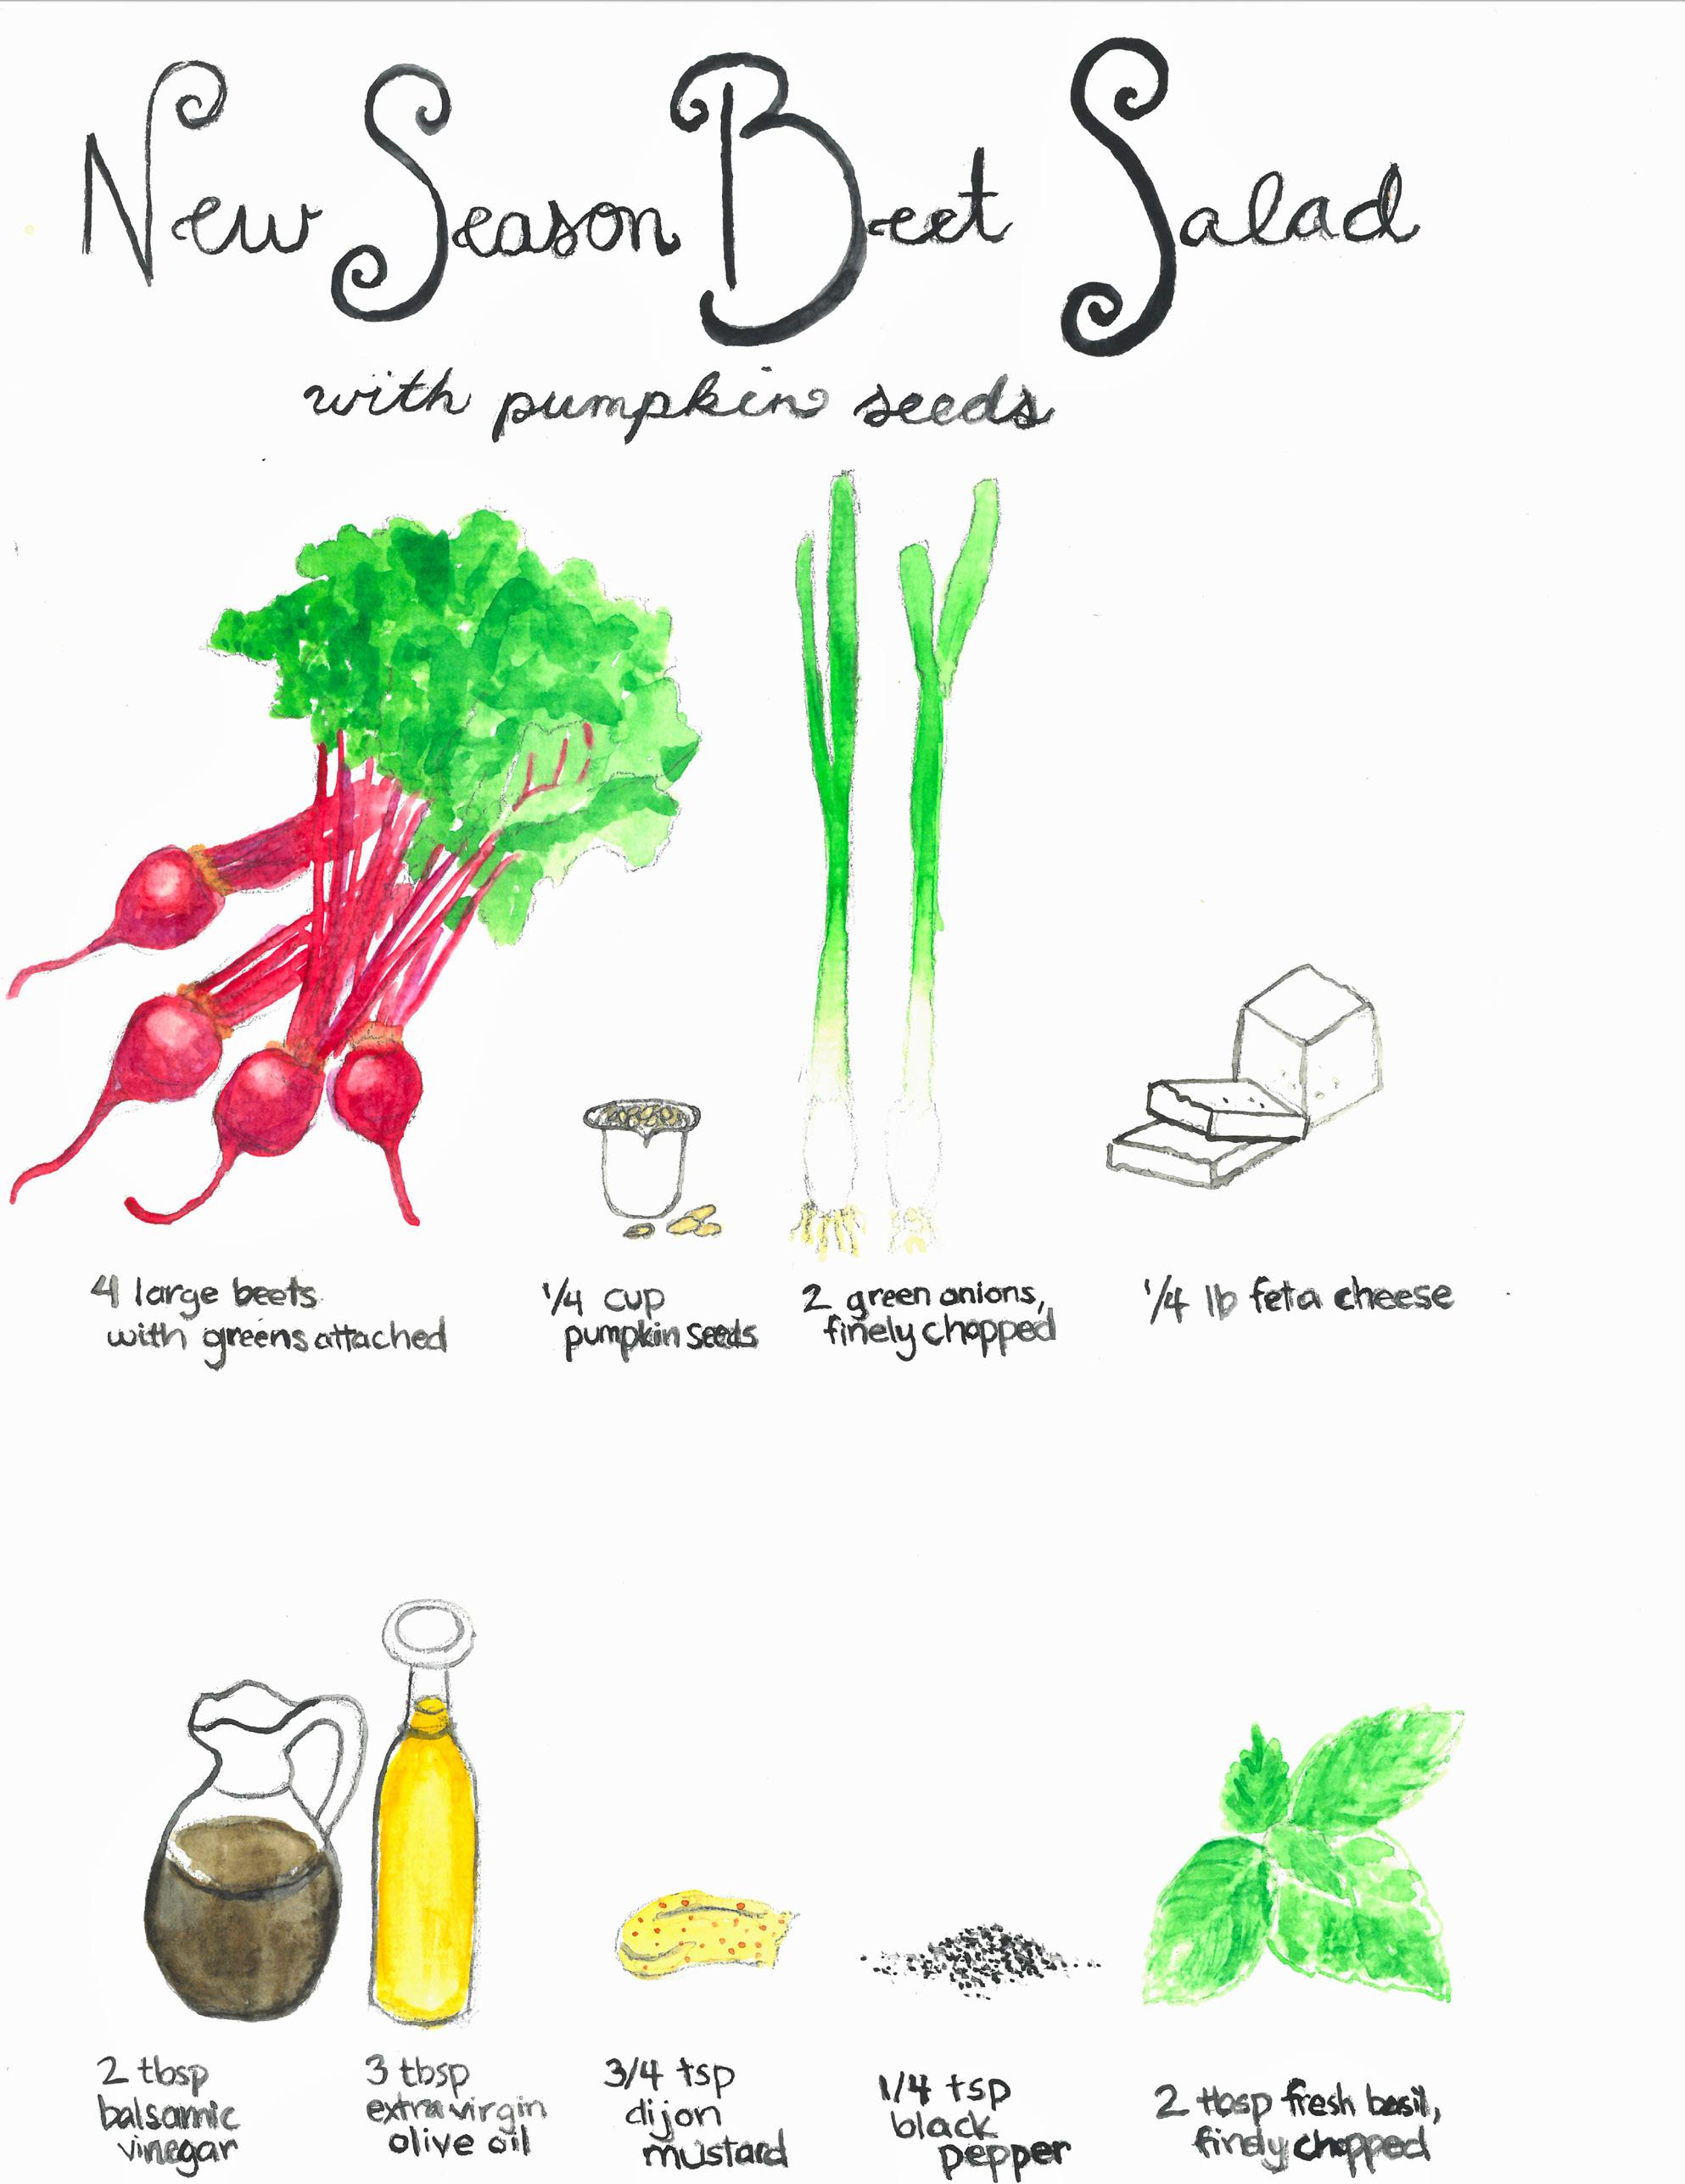 New Season Beet Salad
with pumpkin seeds
4 large beets
with greens attached
1/4 cup
pumpkin seeds
2 green onions,
finely chopped
1/4 lb feta cheese
2 tbsp
balsamic
vinegar
3 tbsp
extra virgin
olive oil
3/4 tsp
dijon
mustard
1/4 tsp
black
pepper
2 tbsp fresh basil,
finely chopped